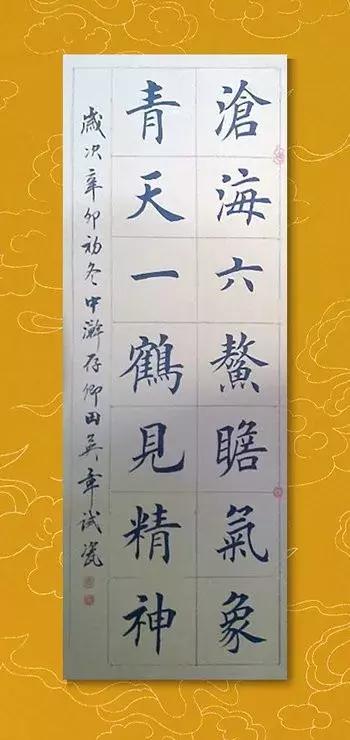 滄海六鰲瞻氣象
青天一鶴見精神
歲次辛卯初冬中澣存卿田英章試瓷